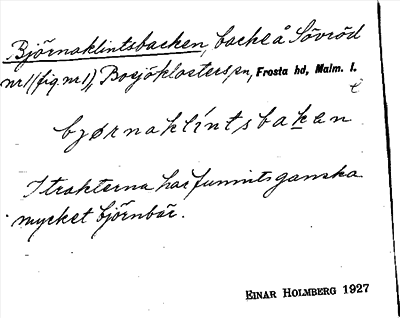 Björnaklintsbacken, backe å Sövröd
nr 1 (fig. nr 1), Bosjöklosters sn, Frosta hd, Malm. l.
bjørnaklíntsbaken
I trakterna har funnits ganska
mycket björnbär.
EINAR HOLMBERG 1927